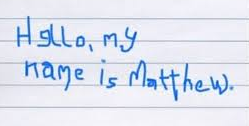 Hello, my
name is Matthew.